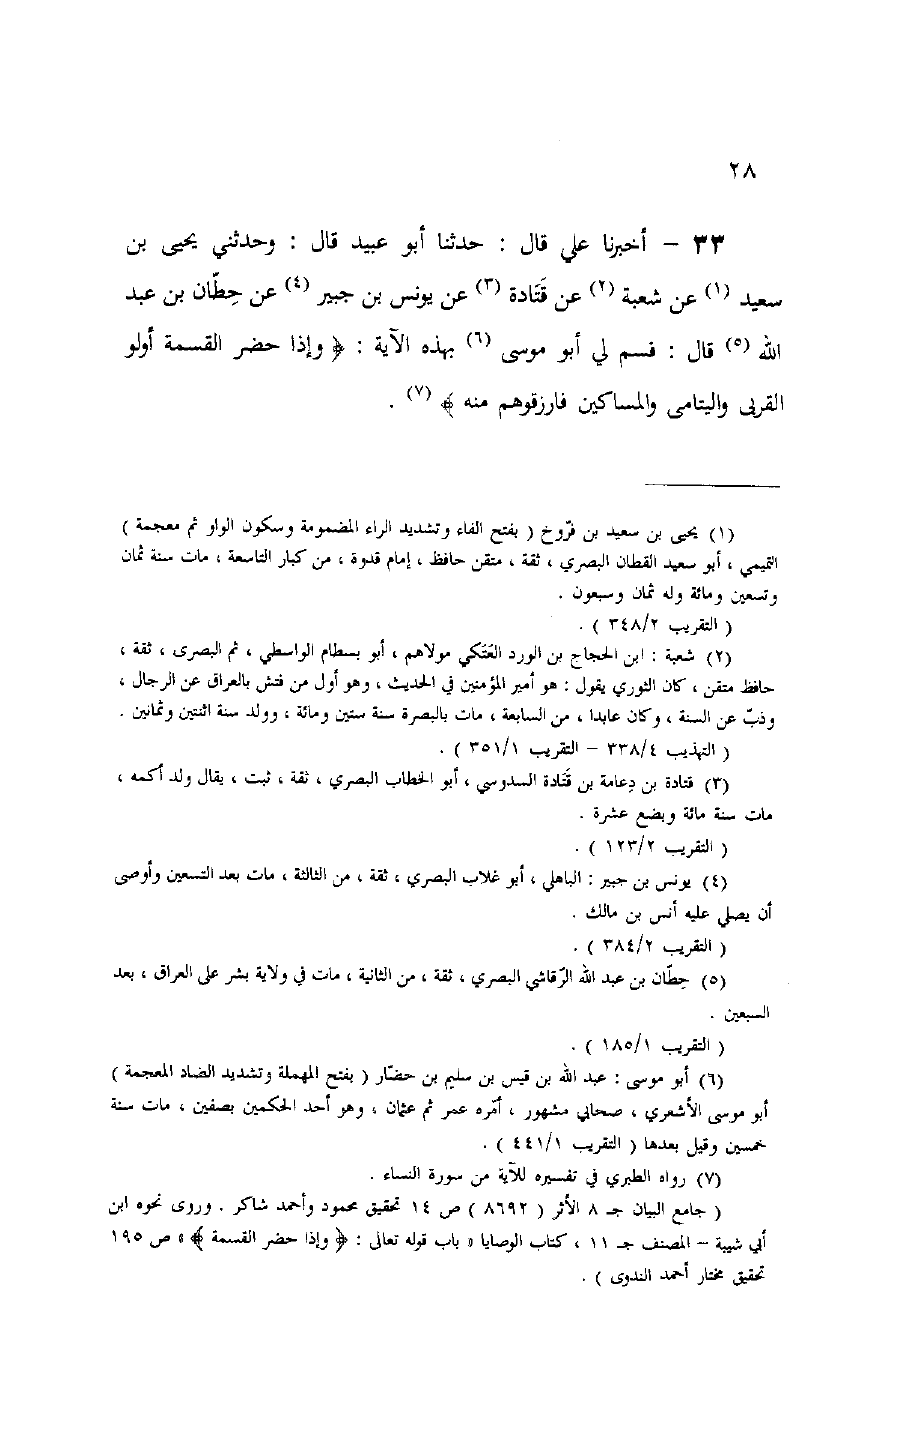 ٢٨
٣٣ - أخبرنا علي قال : حدثنا أبو عبيد قال : وحدثني يحيى بن
سعيد (١) عن شعبة (٢) عن قَتَادة (٣) عن يونس بن جبير (٤) عن حِطَّان بن عبد
الله (٥) قال : قسم لي أبو موسى (٦) بهذه الآية : ﴿ وإذا حضر القسمة أولو
القربى واليتامى والمساكين فارزقوهم منه ﴾ (٧) .
(١) يحيى بن سعيد بن فرّوخ ( بفتح الفاء وتشديد الراء المضمومة وسكون الواو ثم معجمة )
التميمي ، أبو سعيد القطان البصري ، ثقة ، متقن حافظ ، إمام قدوة ، من كبار التاسعة ، مات سنة ثمان
وتسعين ومائة وله ثمان وسبعون .
( التقريب ٣٤٨/٢ ) .
(٢) شعبة : ابن الحجاج بن الورد العَتَكي مولاهم ، أبو بسطام الواسطي ، ثم البصرى ، ثقة ،
حافظ متقن ، كان الثوري يقول : هو أمير المؤمنين في الحديث ، وهو أول من فتش بالعراق عن الرجال ،
وذبّ عن السنة ، وكان عابدا ، من السابعة ، مات بالبصرة سنة ستين ومائة ، وولد سنة اثنتين وثمانين .
( التهذيب ٣٣٨/٤ - التقريب ٣٥١/١ ) .
(٣) قتادة بن دِعامة بن قَتَادة السدوسي ، أبو الخطاب البصري ، ثقة ، ثبت ، يقال ولد أكمه ،
مات سنة مائة وبضع عشرة .
( التقريب ١٢٣/٢ ) .
(٤) يونس بن جبير : الباهلي ، أبو غلاب البصري ، ثقة ، من الثالثة ، مات بعد التسعين وأوصى
أن يصلي عليه أنس بن مالك .
( التقريب ٣٨٤/٢ ) .
(٥) حِطَّان بن عبد الله الرّقاشي البصري ، ثقة ، من الثانية ، مات في ولاية بشر على العراق ، بعد
السبعين .
( التقريب ١٨٥/١ ) .
(٦) أبو موسى : عبد الله بن قيس بن سليم بن حضّار ( بفتح المهملة وتشديد الضاد المعجمة )
أبو موسى الأشعري ، صحابي مشهور ، أمّره عمر ثم عثمان ، وهو أحد الحكمين بصفين ، مات سنة
خمسين وقيل بعدها ( التقريب ٤٤١/١ ) .
(٧) رواه الطبري في تفسيره للآية من سورة النساء .
( جامع البيان جـ ٨ الأثر ( ٨٦٩٢ ) ص ١٤ تحقيق محمود وأحمد شاكر . وروى نحوه ابن
أبي شيبة - المصنف جـ ١١ ، كتاب الوصايا « باب قوله تعالى : ﴿ وإذا حضر القسمة ﴾ » ص ١٩٥
تحقيق مختار أحمد الندوى ) .